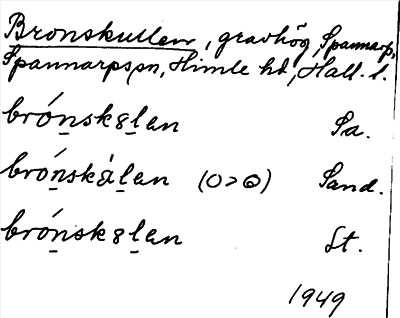 Bronskullen, gravhög, Spannarp,
Spannarps sn, Himle hd, Hall. l.
brón̲sk8l̲an Sa.
brón̲skàl̲an (O>ɷ) Sand.
brón̲sk8l̲an St.
1949